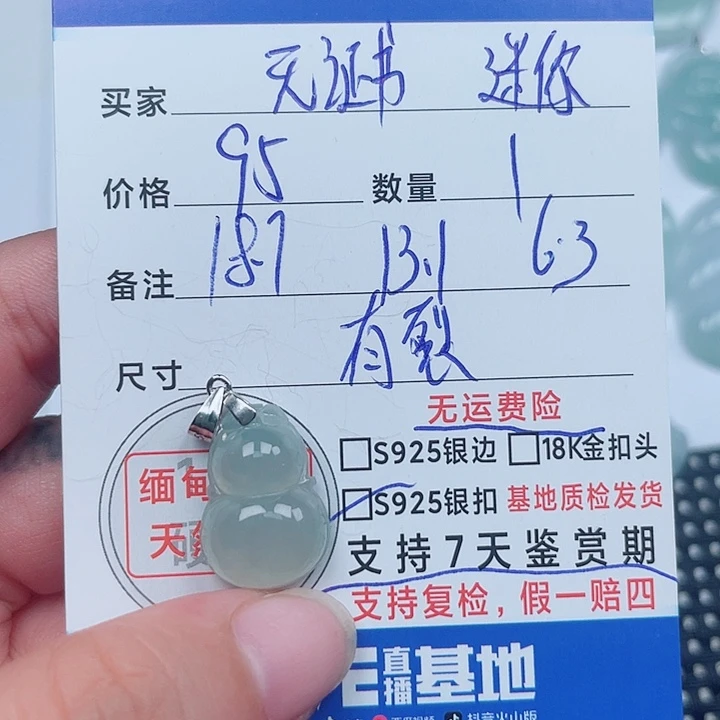 买家 无证书 迷你
价格 95 数量 1
备注 18.7 13.1 6.3
尺寸 有裂
无运费险
S925银边 18K金扣头
S925银扣 基地质检发货
支持7天鉴赏期
支持复检,假一赔四
缅甸
天
直播基地
抖音火山版